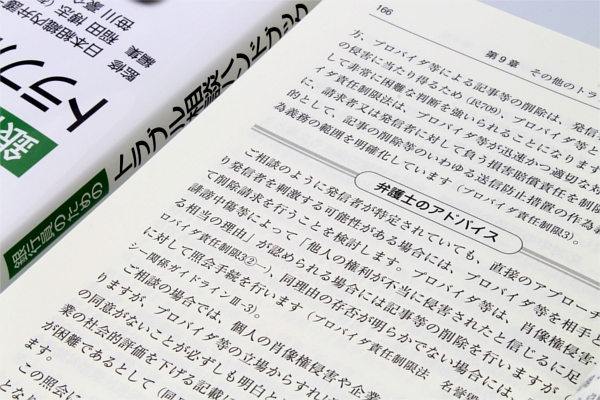 監修 日本組織内弁護
編集 稲田 博志
笹川 豪介
銀
トラブル
銀行員のための
トラブル相談ハンドブック
166
第9章 その他のトラ
方、プロバイダ等による記事等の削除は、発信
の侵害に当たり得るため(民709)、プロバイダ等と
して非常に困難な判断を強いられることになります
イダ責任制限法は、プロバイダ等が迅速かつ適切な対
に、請求者又は発信者に対して負う損害賠償責任を制限
的として、記事の削除等のいわゆる送信防止措置の作為
為義務の範囲を明確化しています(プロバイダ責任制限3)。
弁護士のアドバイス
ご相談のように発信者が特定されていても、直接のアプローチ
り発信者を刺激する可能性がある場合には、プロバイダ等を相手と
て削除請求を行うことを検討します。プロバイダ等は、肖像権侵害
誹謗中傷等によって「他人の権利が不当に侵害されたと信じるに足
る相当の理由」が認められる場合には記事等の削除を行いますが
ロバイダ責任制限3②一)、同理由の有否が明らかでない場合には、
に対して照会手続を行います(プロバイダ責任制限法 名誉毀
シー関係ガイドラインⅢ-3)。
ご相談の場合では、個人の肖像権侵害や企業
りますが、プロバイダ等の立場からすれ
の同意がないことが必ずしも明白と
業の社会的評価を下げる記載に
が困難であるとして(同
ます。
この照会に
となり